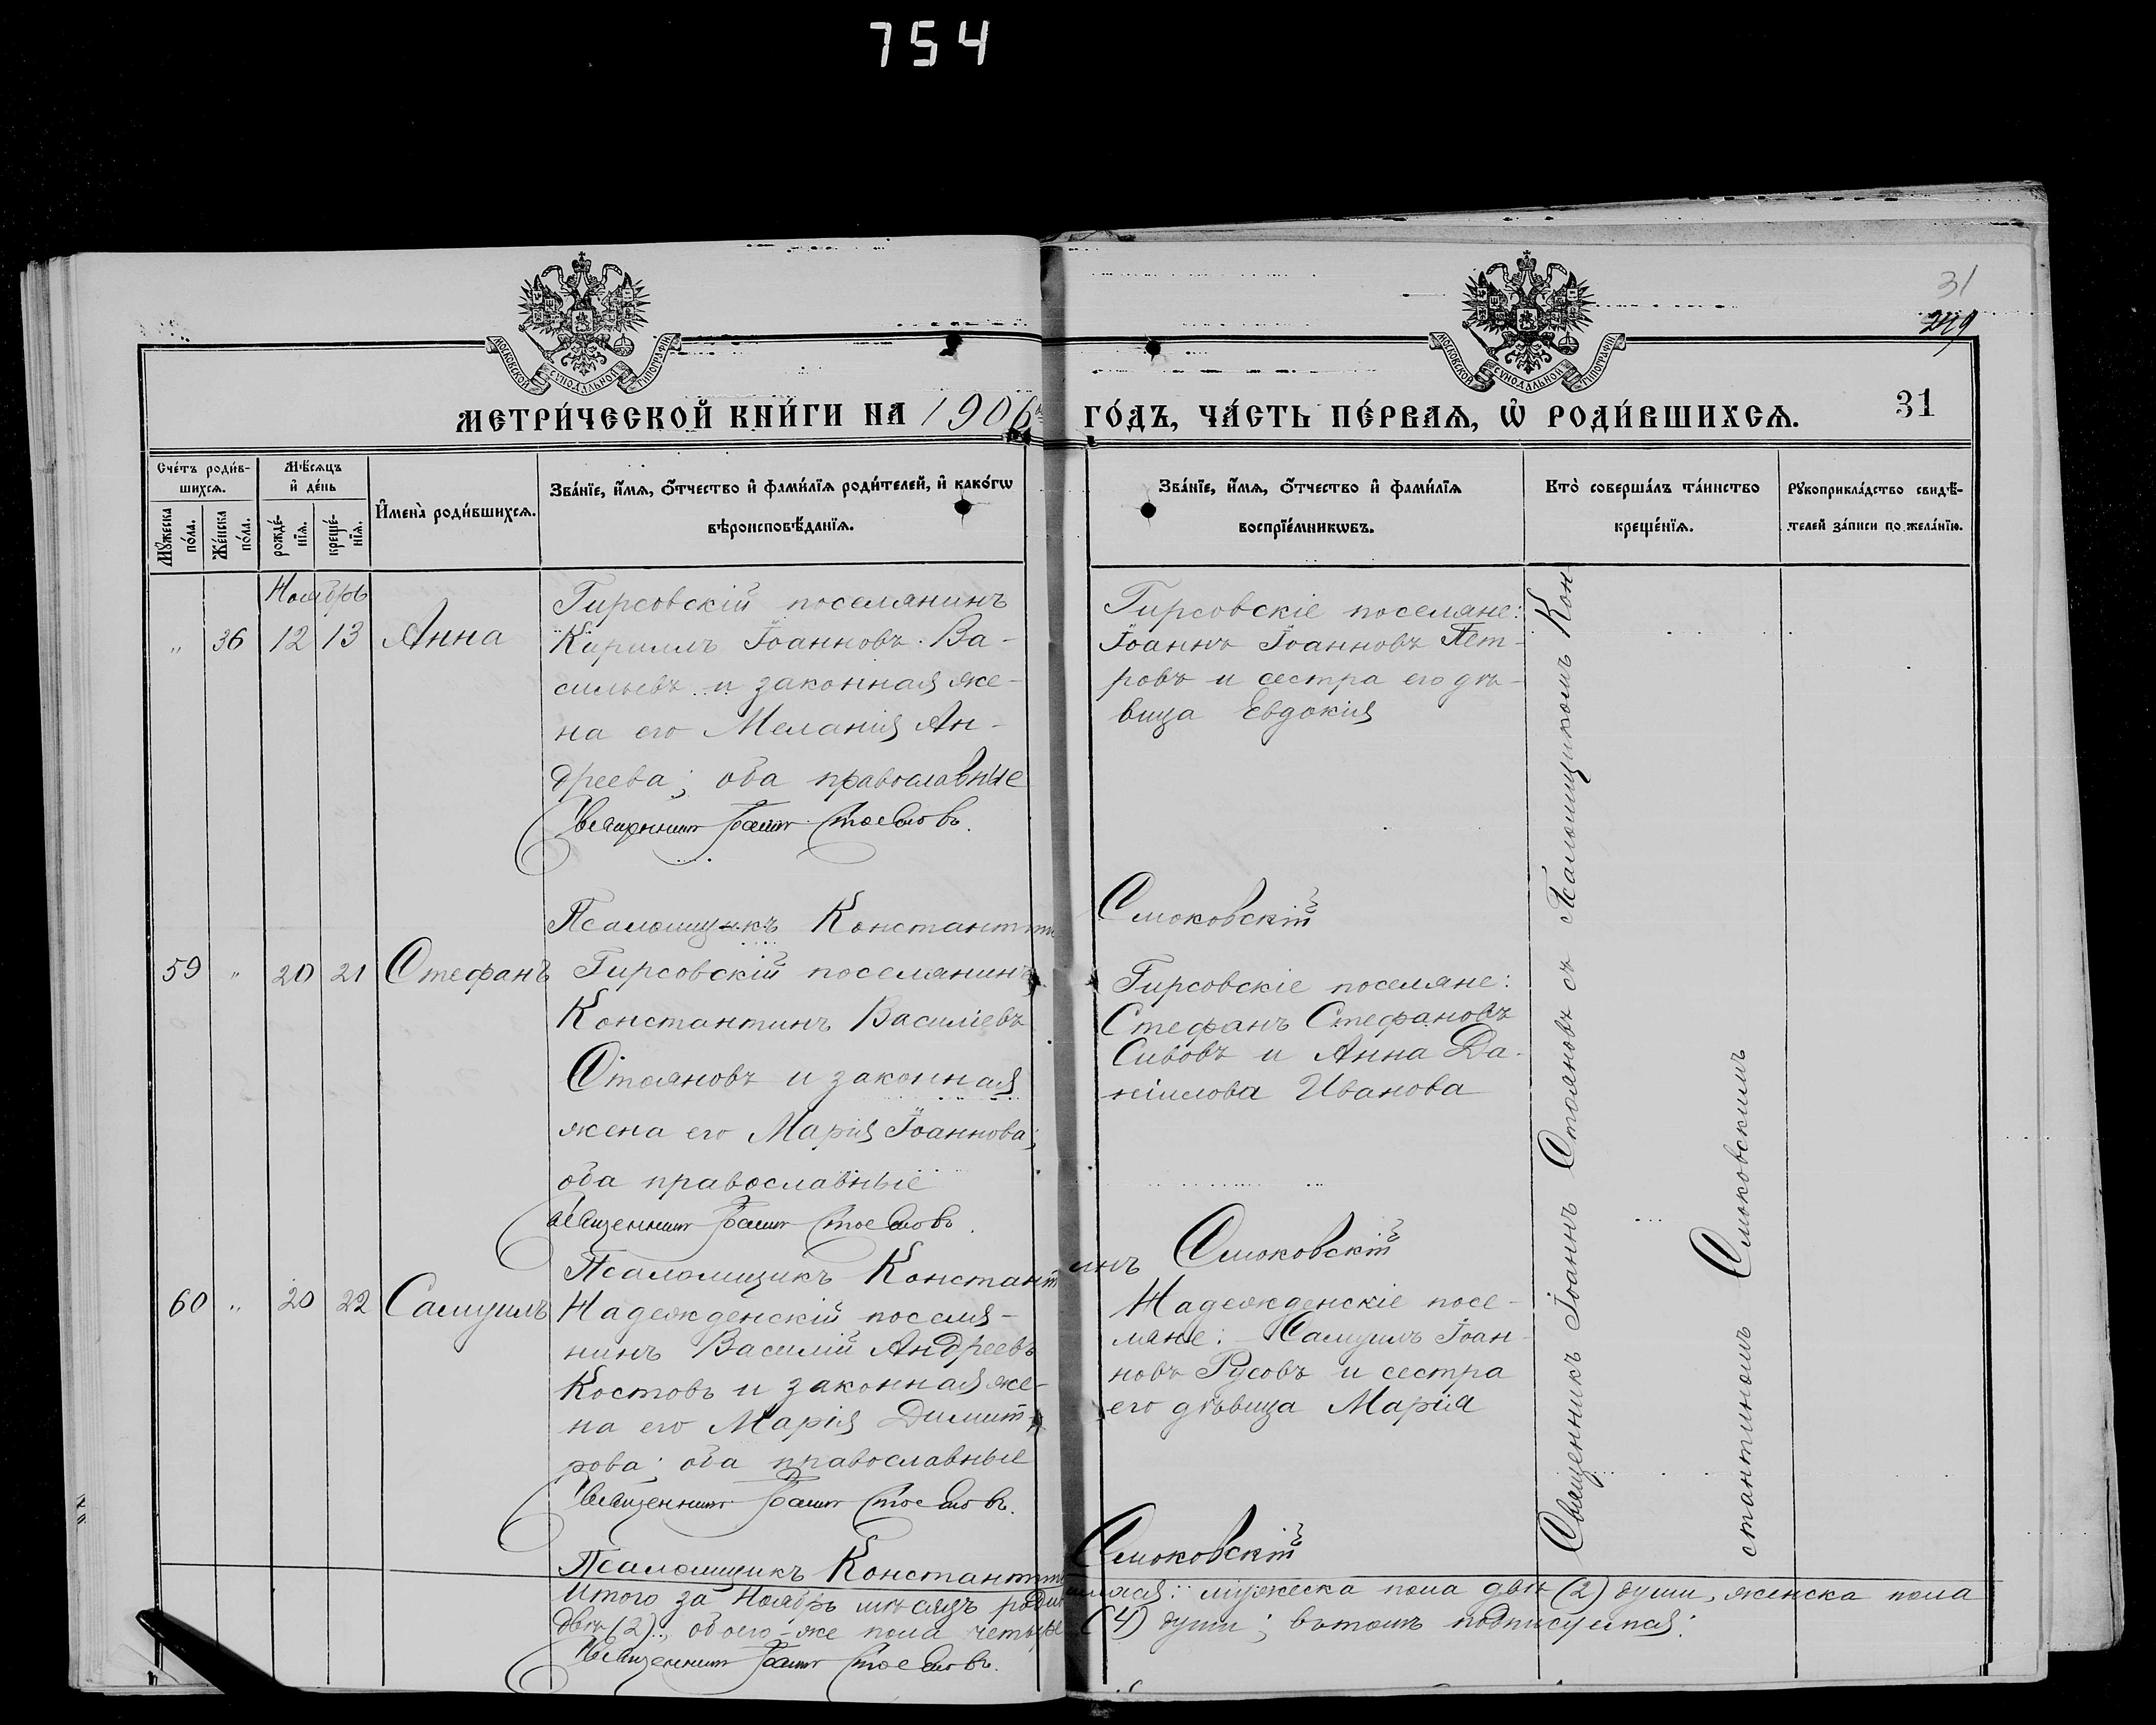 754
31
249
МОСКОВСКОЙ СУНОДАЛЬНОЙ ТИПОГРАФІИ
МОСКОВСКОЙ СУНОДАЛЬНОЙ ТИПОГРАФІИ
МЕТРИ́ЧЕСКОЙ КНИ́ГИ НА 1906й ГО́ДЪ, ЧА́СТЬ ПЕ́РВАѦ, Ѡ РОДИ́ВШИХСѦ. 31
Сче́тъ роди́в-
шихсѧ.
Мѣ́сѧцъ
и҆ де́нь
Мꙋ́жеска по́ла.
Же́нска по́ла.
рожде́-
нїѧ.
креще́-
нїѧ.
И҆мена̀ роди́вшихсѧ.
Зва́нїе, и҆́мѧ, ѻ҆́тчество и҆ фами́лїѧ роди́телей, и҆ како́гѡ
вѣроисповѣ́данїѧ.
Зва́нїе, и҆́мѧ, ѻ҆́тчество и҆ фами́лїѧ
воспрїе́мникѡвъ.
Кто̀ соверша́лъ та́инство
креще́нїѧ.
Рꙋкоприкла́дство свидѣ́-
телей за́писи по жела́нїю.
Ноябрь
" 36 12 13 Анна
Гирсовскій поселянинъ
Кириллъ Іоанновъ Ва-
сильевъ и законная же-
на его Меланія Ан-
дреева; оба православные
Священникъ Іоаннъ Стояновъ.
Псаломщикъ Константинъ Смоковскій
Гирсовскіе поселяне:
Іоаннъ Іоанновъ Пет-
ровъ и сестра его дѣ-
вица Евдокія
59 " 20 21 Стефанъ
Гирсовскій поселянинъ
Константинъ Василіевъ
Стояновъ и законная
жена его Марія Іоаннова;
оба православные
Священникъ Іоаннъ Стояновъ.
Псаломщикъ Константинъ Смоковскій
Гирсовскіе поселяне:
Стефанъ Стефановъ
Сивовъ и Анна Да-
ніилова Иванова
60 " 20 22 Самуилъ
Надежденскій поселя-
нинъ Василій Андреевъ
Костовъ и законная же-
на его Марія Димит-
рова; оба православные
Священникъ Іоаннъ Стояновъ.
Псаломщикъ Константинъ Смоковскій
Надежденскіе посе-
ляне: Самуилъ Іоан-
новъ Русовъ и сестра
его дѣвица Марія
Священникъ Іоаннъ Стояновъ съ Псаломщикомъ Кон-
стантиномъ Смоковскимъ
Итого за Ноябрь мѣсяцъ родилася: мужеска пола двѣ (2) души, женска пола
двѣ (2), обоего-же пола четыре (4) души; въ томъ подписуемся:
Священникъ Іоаннъ Стояновъ.